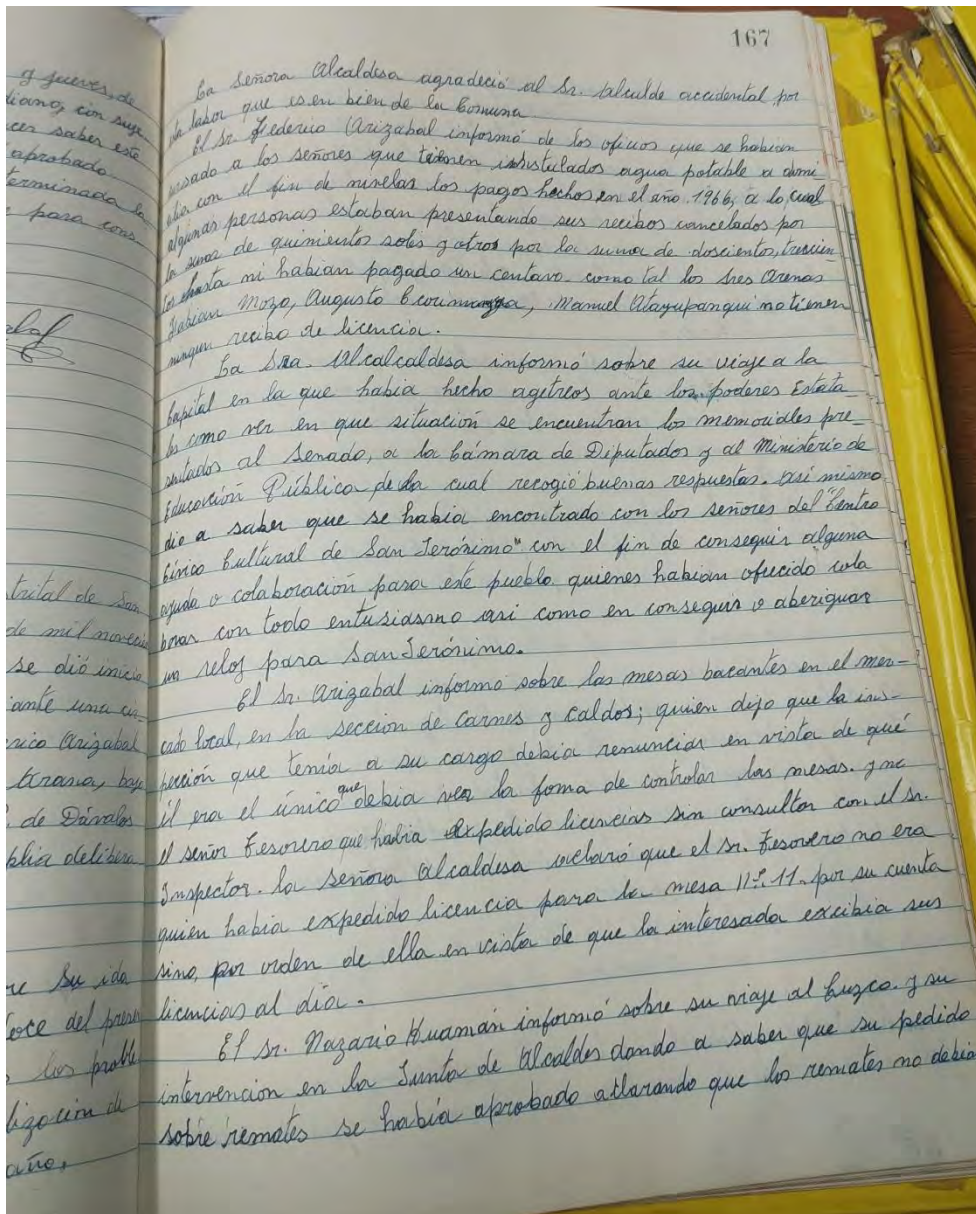 167
y jueves, de
diano, con suje
cer saber este
aprobado
terminada la
para cons
trital de San
de mil noveci
se dió inicio
ante una
rico Arizabal
Arana, bajo
de Dávalos
plia delibera
re su ida
oce del pres
los proble
lización de
año.
La Señora Alcaldesa agradeció al Sr. Alcalde accidental por
labor que es en bien de la Comuna
El Sr. Federico Arizabal informó de los oficios que se habian
cursado a los señores que tienen insistulados agua potable a domi
cilio con el fin de nivelar los pagos hechos en el año 1966, a lo cual
algunas personas estaban presentando sus recibos cancelados por
la suma de quinientos soles y otros por la suma de doscientos, trecien
tos hasta ni habian pagado un centavo como tal los sres Arenas
Fabian Mozo, Augusto Ccorimanya, Manuel Atayupanqui no tienen
ningun recibo de licencia.
La Sra. Alcalcaldesa informó sobre su viaje a la
Capital en la que habia hecho agetreos ante los poderes Estata
les como ver en que situación se encuentran los memoriales pre_
sentados al Senado, a la Cámara de Diputados y al Ministerio de
Educación Pública de la cual recogió buenas respuestas. Asi mismo
dio a saber que se habia encontrado con los señores del "Centro
Cívico Cultural de San Jerónimo" con el fin de conseguir alguna
ayuda o colaboración para este pueblo quienes habian ofrecido cola
borar con todo entusiasmo asi como en conseguir o aberiguar
un reloj para San Jerónimo.
El Sr. Arizabal informó sobre las mesas bacantes en el mer-
cado local, en la sección de Carnes y caldos; quien dijo que la ins-
pección que tenía a su cargo debia renunciar en vista de qué
él era el único que debia ver la foma de controlar las mesas. y no
el señor Tesorero que habia expedido licencias sin consultar con el sr.
Inspector. La señora Alcaldesa aclaró que el sr. Tesorero no era
quien habia expedido licencia para la mesa Nº. 11. por su cuenta
sino, por orden de ella en vista de que la interesada excibia sus
licencias al día.
El sr. Nazario Huamán informó sobre su viaje al Cuzco. y su
intervencion en la Junta de Alcaldes dando a saber que su pedido
sobre remates se había aprobado aclarando que los remates no debia